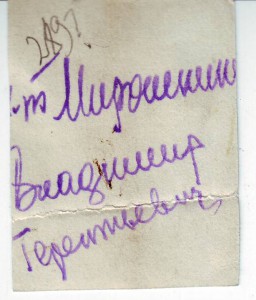 289?
Мирошнич
Владимир
Терентьевич